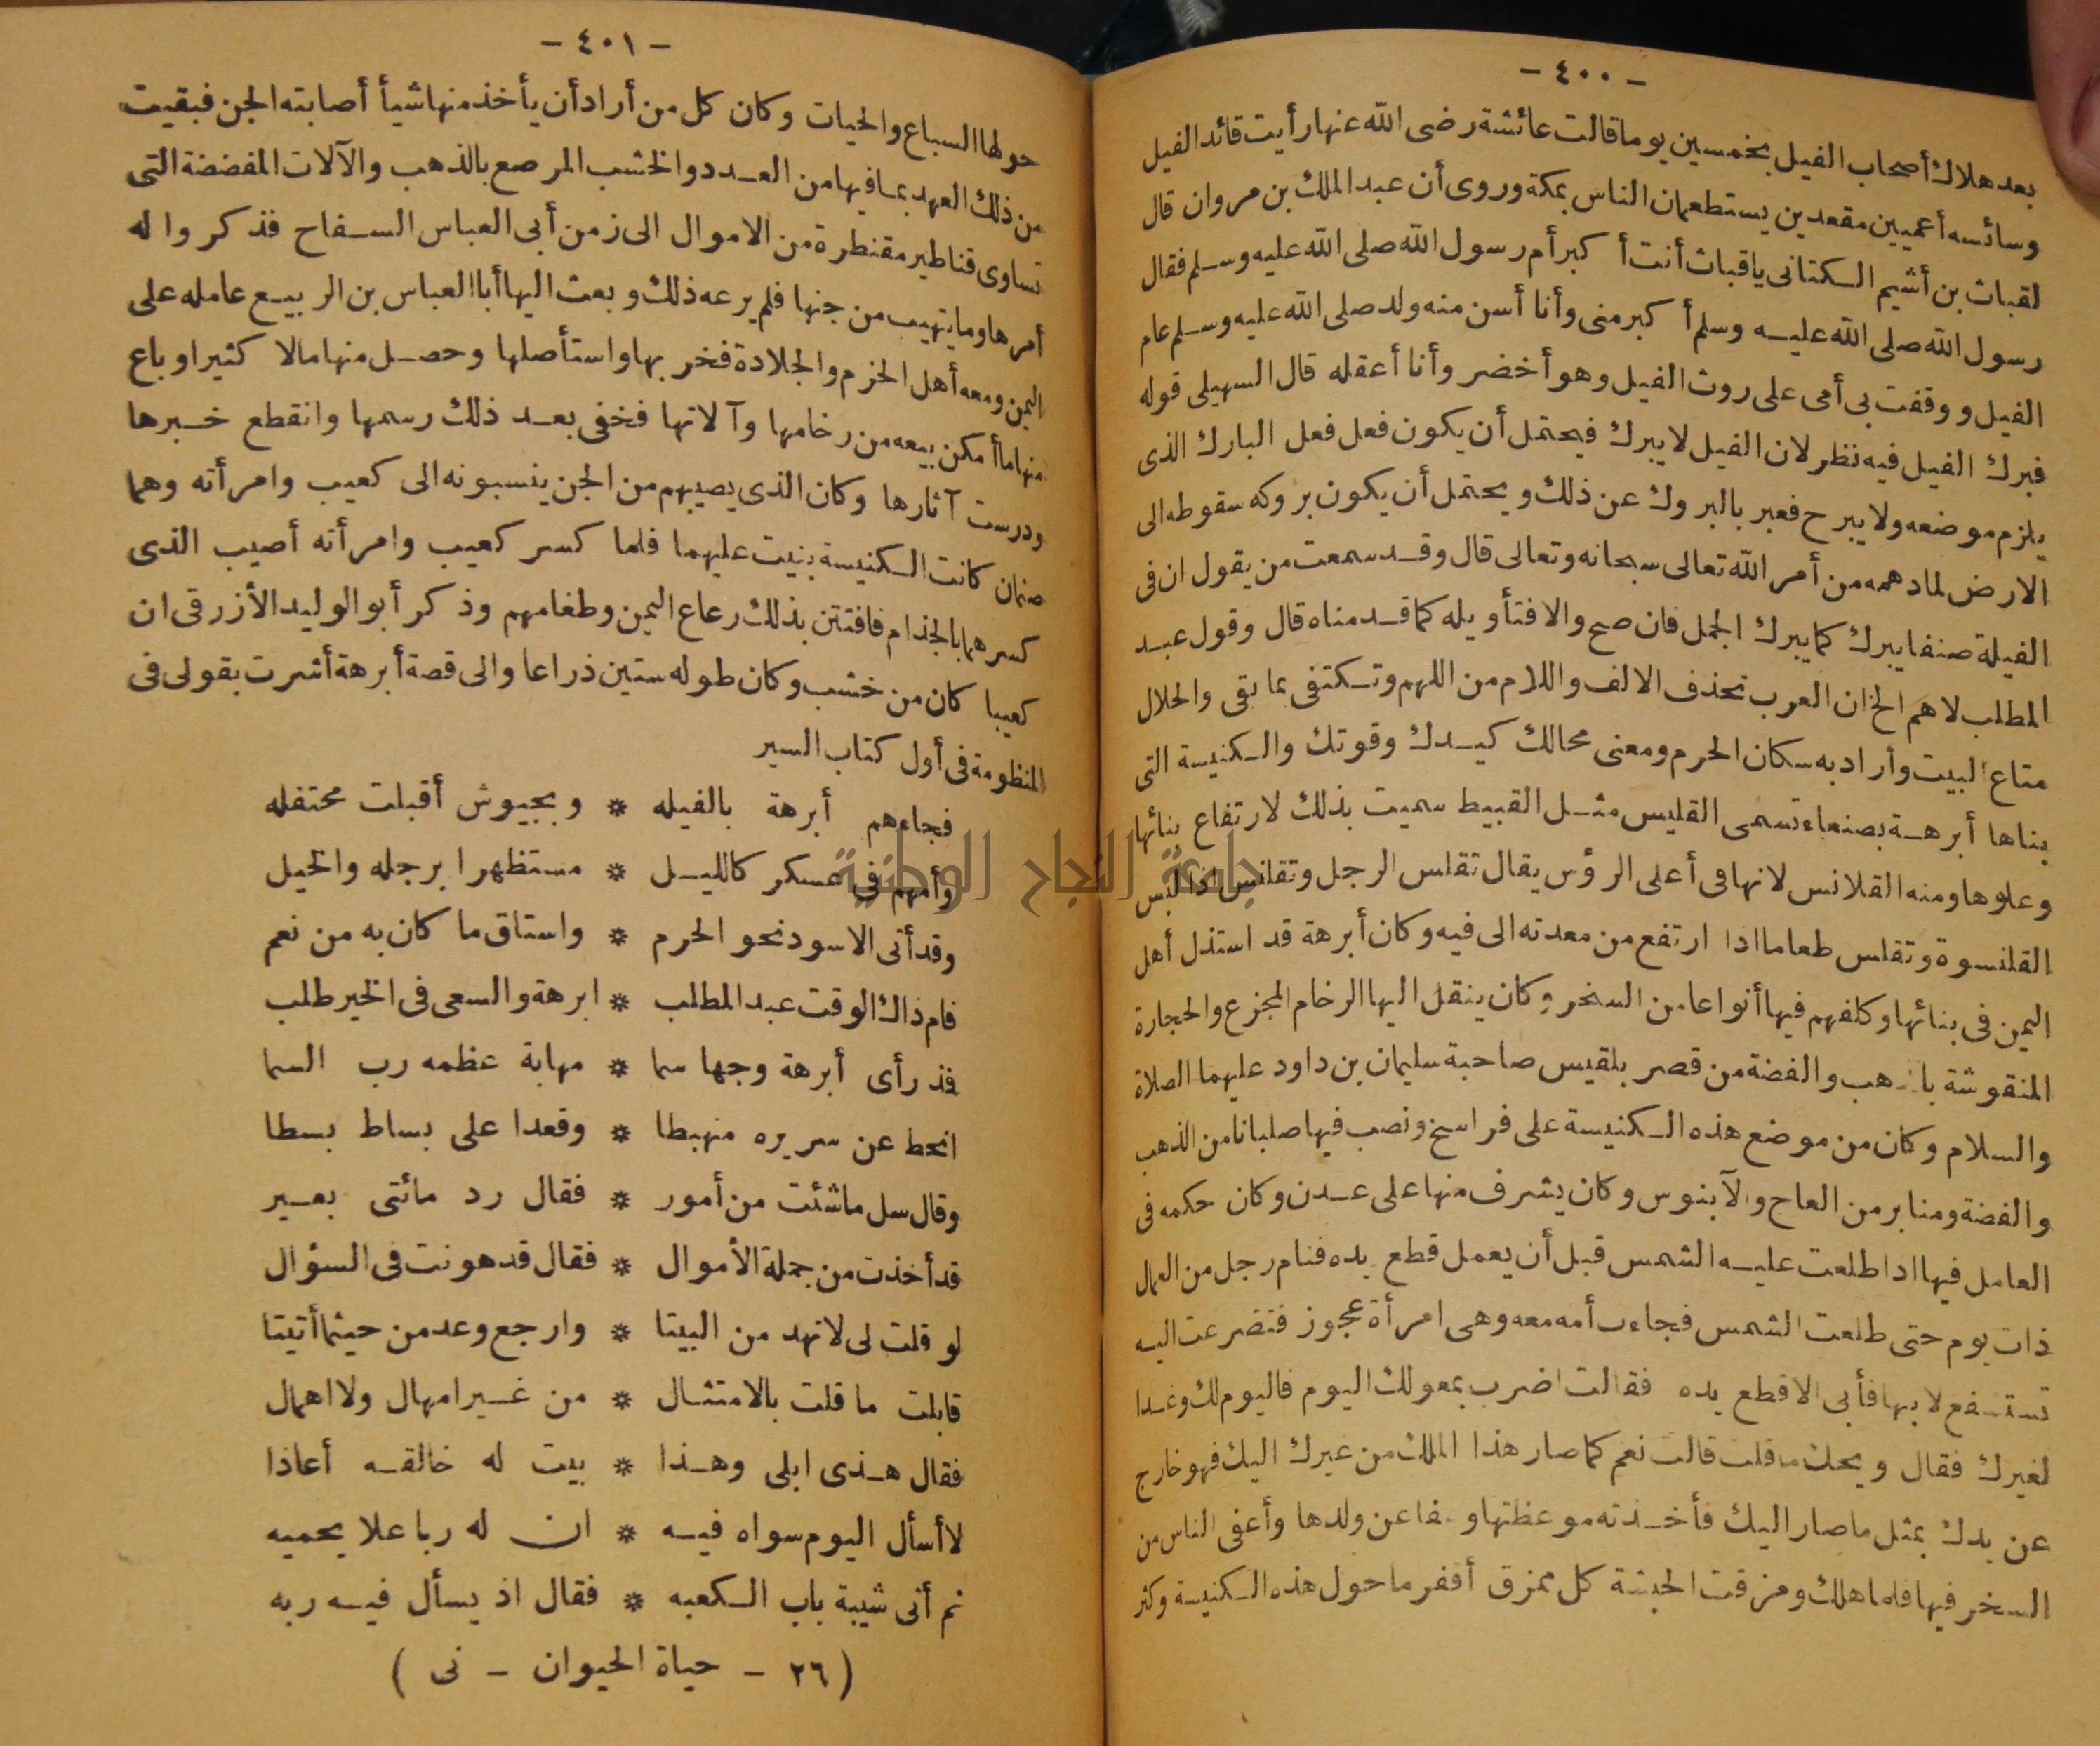 - ٤٠٠ -
بعد هلاك أصحاب الفيل بخمسين يوما قالت عائشة رضى الله عنها رأيت قائد الفيل
وسائسه أعميين مقعدين يستطعمان الناس بمكة وروى أن عبد الملك بن مروان قال
لقباث بن أشيم الكنانى ياقباث أنت أكبر أم رسول الله صلى الله عليه وسلم فقال
رسول الله صلى الله عليه وسلم أكبر منى وأنا أسن منه ولد صلى الله عليه وسلم عام
الفيل ووقفت بى أمى على روث الفيل وهو أخضر وأنا أعقله قال السهيلى قوله
فبرك الفيل فيه نظر لان الفيل لا يبرك فيحتمل أن يكون فعل فعل البارك الذى
يلزم موضعه ولا يبرح فعبر بالبروك عن ذلك ويحتمل أن يكون بروكه سقوطه الى
الارض لما دهمه من أمر الله تعالى سبحانه وتعالى قال وقد سمعت من يقول ان فى
الفيلة صنفا يبرك كما يبرك الجمل فان صح والا فتأويله كما قدمناه قال وقول عبد
المطلب لاهم الخ ان العرب تحذف الالف واللام من اللهم وتكتفى بما بقى والحلال
متاع البيت وأراد به سكان الحرم ومعنى محالك كيدك وقوتك والكنيسة التى
بناها أبرهة بصنعاء تسمى القليس مثل القبيط سميت بذلك لارتفاع بنائها
وعلوها ومنه القلانس لانها فى أعلى الرؤس يقال تقلس الرجل وتقلنس اذا لبس
القلنسوة وتقلس طعاما اذا ارتفع من معدته الى فيه وكان أبرهة قد استذل أهل
اليمن فى بنائها وكلفهم فيها أنواعا من السخر وكان ينقل اليها الرخام المجزع والحجارة
المنقوشة بالذهب والفضة من قصر بلقيس صاحبة سليمان بن داود عليهما الصلاة
والسلام وكان من موضع هذه الكنيسة على فراسخ ونصب فيها صلبانا من الذهب
والفضة ومنابر من العاج والآبنوس وكان يشرف منها على عدن وكان حكمه فى
العامل فيها اذا طلعت عليه الشمس قبل أن يعمل قطع يده فنام رجل من العمال
ذات يوم حتى طلعت الشمس فجاءت أمه معه وهى امرأة عجوز فتضرعت اليه
تستشفع لابنها فأبى الا قطع يده فقالت اضرب بمعولك اليوم فاليوم لك وغدا
لغيرك فقال ويحك ما قلت قالت نعم كما صار هذا الملك من غيرك اليك فهو خارج
عن يدك بمثل ما صار اليك فأخذته موعظتها وعفا عن ولدها وأعفى الناس من
السخر فيها فلما هلك ومزقت الحبشة كل ممزق أقفر ما حول هذه الكنيسة وكثر
- ٤٠١ -
حولها السباع والحيات وكان كل من أراد أن يأخذ منها شيأ أصابته الجن فبقيت
من ذلك العهد بما فيها من العدد والخشب المرصع بالذهب والآلات المفضضة التى
تساوى قناطير مقنطرة من الاموال الى زمن أبى العباس السفاح فذكروا له
أمرها وما يتهيب من جنها فلم يرعه ذلك وبعث اليها أبا العباس بن الربيع عامله على
اليمن ومعه أهل الحزم والجلادة فخربها واستأصلها وحصل منها مالا كثيرا وباع
منها ما أمكن بيعه من رخامها وآلاتها فخفى بعد ذلك رسمها وانقطع خبرها
ودرست آثارها وكان الذى يصيبهم من الجن ينسبونه الى كعيب وامرأته وهما
صنمان كانت الكنيسة بنيت عليهما فلما كسر كعيب وامرأته أصيب الذى
كسرهما بالجذام فافتتن بذلك رعاع اليمن وطغامهم وذكر أبو الوليد الأزرقى ان
كعيبا كان من خشب وكان طوله ستين ذراعا والى قصة أبرهة أشرت بقولى فى
المنظومة فى أول كتاب السير
فجاءهم أبرهة بالفيله * وبجيوش أقبلت محتفله
وأمهم فى عسكر كالليل * مستظهرا برجله والخيل
وقد أتى الاسود نحو الحرم * واستاق ما كان به من نعم
فام ذاك الوقت عبد المطلب * ابرهة والسعى فى الخير طلب
فذ رأى أبرهة وجها سما * مهابة عظمه رب السما
انحط عن سريره منهبطا * وقعدا على بساط بسطا
وقال سل ما شئت من أمور * فقال رد مائتى بعير
قد أخذت من جملة الأموال * فقال قد هونت فى السؤال
لو قلت لى لا تهد من البيتا * وارجع وعد من حيثما أتيتا
قابلت ما قلت بالامتثال * من غير امهال ولا اهمال
فقال هذى ابلى وهذا * بيت له خالقه أعاذا
لا أسأل اليوم سواه فيه * ان له ربا علا يحميه
ثم أتى شيبة باب الكعبه * فقال اذ يسأل فيه ربه
(٢٦ - حياة الحيوان - نى)
جامعة النجاح الوطنية